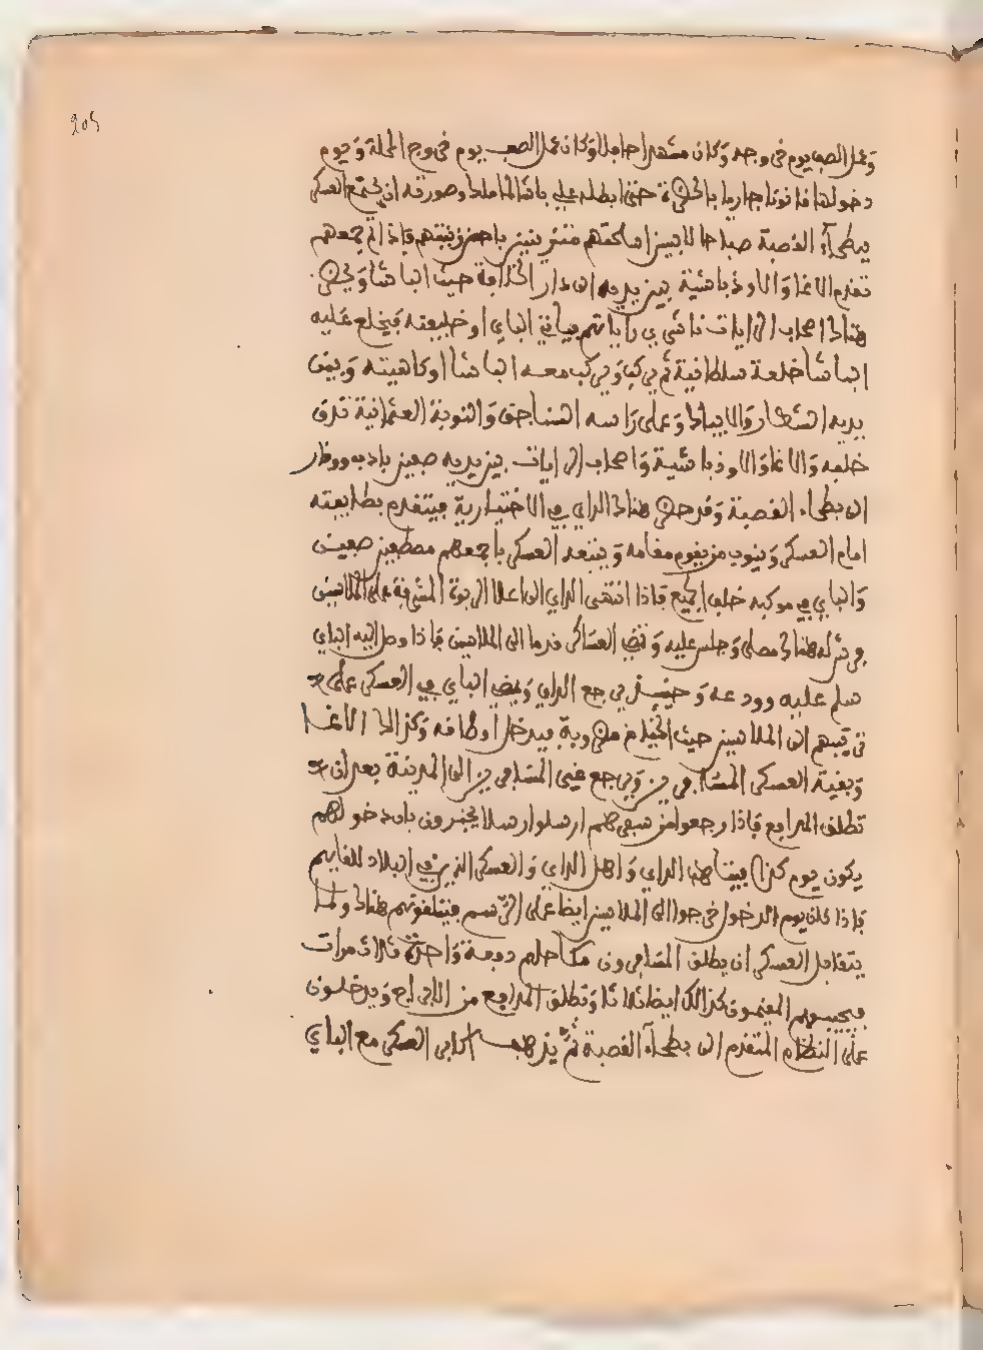 205
وعمل الصف يوم خروجه وكان مشهدا حافلا وكان عمل الصف يوم خروج المحلة ويوم
دخولها قانونا جاريا بالحضرة حتى ابطله علي باشا الماملد وصورته ان يجتمع العسكر
ببطحاء القصبة صباحا لابسين اسلحتهم متزينين باحسن زينتهم فاذا تم جمعهم
تقدم الاغا والاوذباشية بين يديه الى دار الخلافة حيث الباشا ويحضر
هنالك اصحاب الرايات ناشري راياتهم فياتي الباي او خليفته فيخلع عليه
الباشا خلعة سلطانية ثم يركب ويركب معه الباشا او كاهيته وبين
يديه الشطار والابيباك وعلى راسه السناجق والنوبة العثمانية تدق
خلفه والاغا والاوذباشية واصحاب الرايات بين يديه صفين بادب ووقار
الى بطحاء القصبة وقد حضر هنالك الداي في الاختيارية فيتقدم بطايفته
امام العسكر وينوب من يقوم مقامه ويتبعه العسكر باجمعهم مصطفين صفين
والباي في موكبه خلف الجميع فاذا انتهى الداي الى اعلا الربوة المشرفة على الملاسين
فرش له هنالك مصلى وجلس عليه وتمضي العساكر قدما الى الملاسين فاذا وصل اليه الباي
سلم عليه وودعه وحينئذ يرجع الداي ويمضي الباي في العسكر على
ترتيبهم الى الملاسين حيث الخيام مضروبة فيدخل اوطاقه وكذالك الاغا
وبقية العسكر المسافرين ويرجع غير المسافرين الى المدينة بعد ان
تطلق المدافع فاذا رجعوا من سفرهم ارسلوا رسلا يخبرون بان دخولهم
يكون يوم كذا فيتاهب الداي واهل الداي والعسكر الذين في البلاد للقايهم
فاذا كان يوم الدخول خرجوا الى الملاسين ايضا على الرسم فيتلقونهم هنالك ولما
يتقابل العسكران يطلق المسافرون مكاحلهم دفعة واحدة ثلاث مرات
فيجيبهم المقيمون كذالك ايضا ثلاثا وتطلق المدافع من الابراج ويدخلون
على النظام المتقدم الى بطحاء القصبة ثم يذهب اكابر العسكر مع الباي